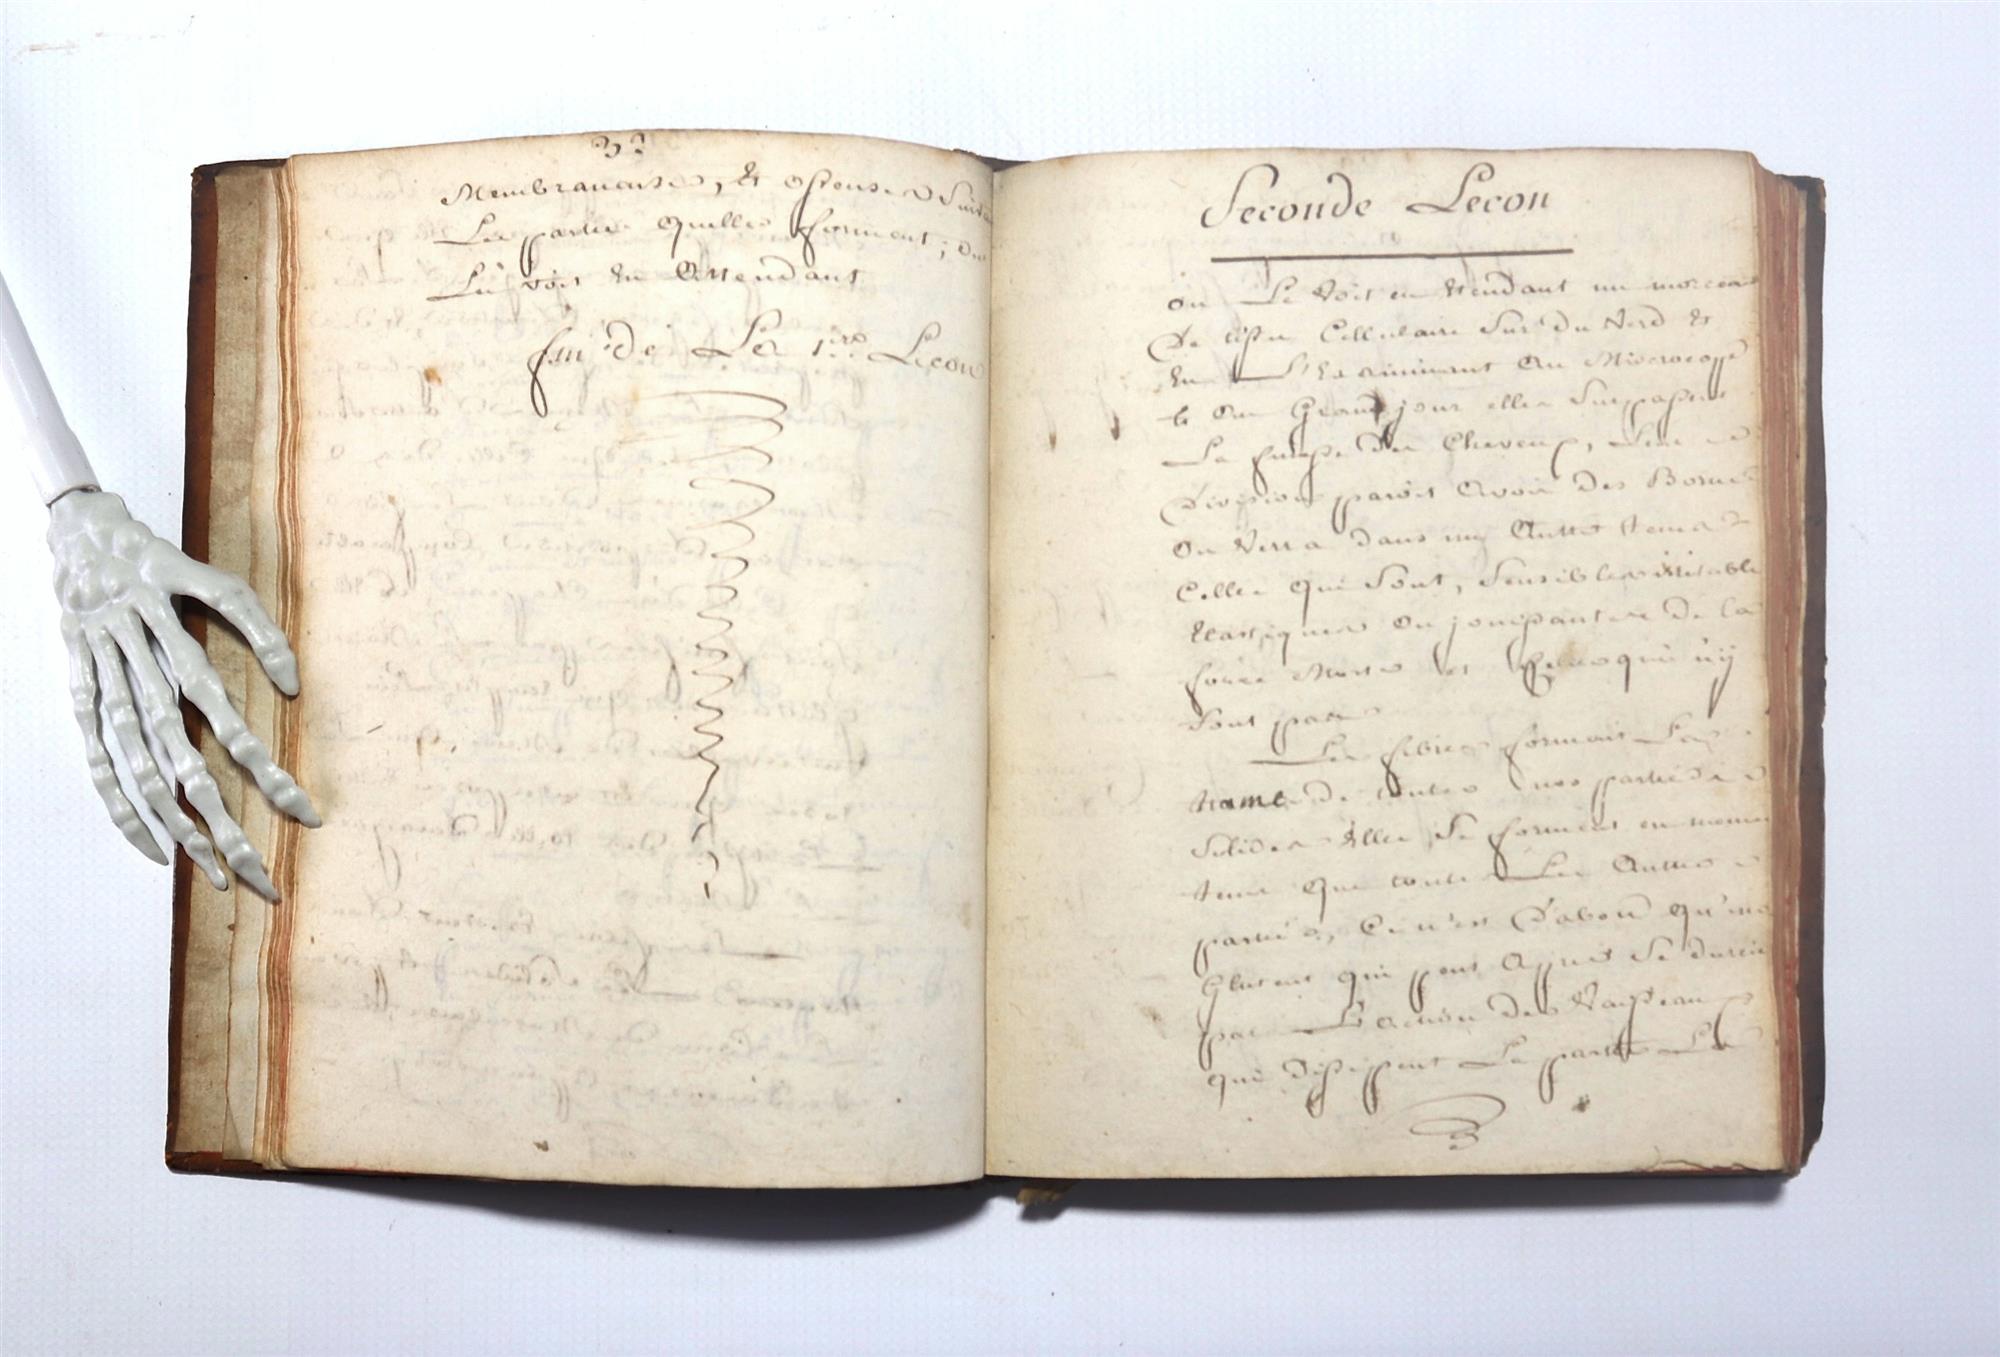 3?
Membraneuses, et osseuses suivt
Les partie quelles forment; on
Le voit En Ettendant
fin de La 1.re Lecon
Seconde Lecon
on Le Voit en Ettendant un morceau
De tissu Cellulaire Sur du Verd et
En L'Examinant au Microscope
et au Grand jour elles Surpassent
La finesse des Cheveux, Leur
Division paroit avoir Des Bornes
on Verra dans un Auttre tems
Celles qui Sont, Sensibles irritable
Elastiques ou jouissantes de la
force Morte et Celles qui n'y
Sont pas
Les fibres format La
trame de toutes nos parties
Solides Elles Se forment en meme
tems que toute Les Auttres
parties, Ce n'est D'abord qu'un
Glutent qui peut Appres Se durcir
par L'action des Vaisseaux
qui Dissippent La partie La